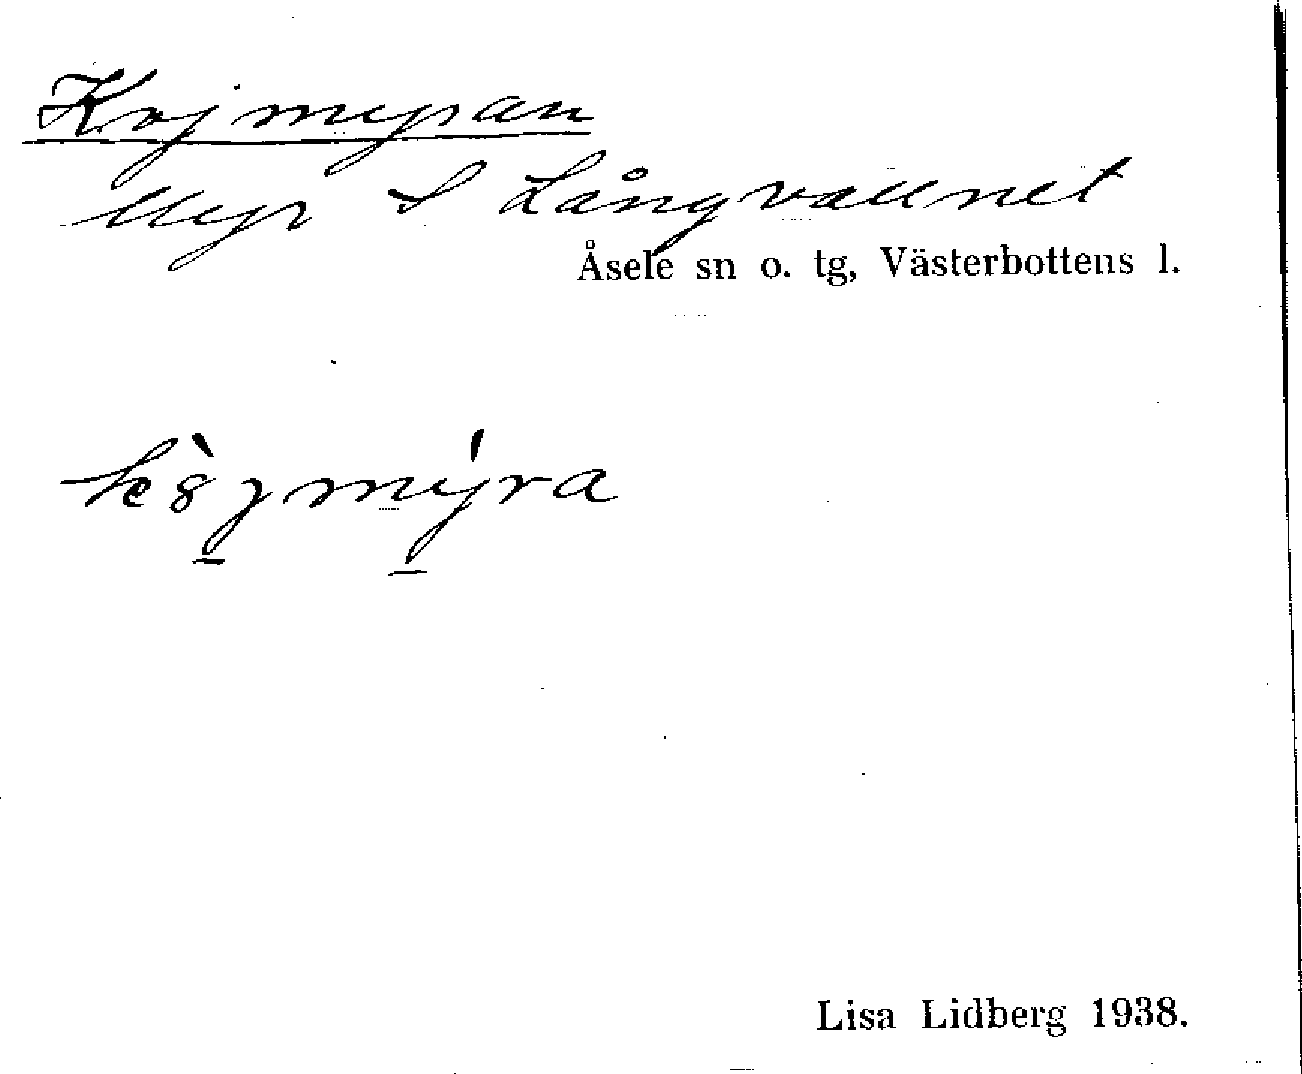 Kojmyran
Myr S Långvattnet
Åsele sn o. tg, Västerbottens l.
Lisa Lidberg 1938.